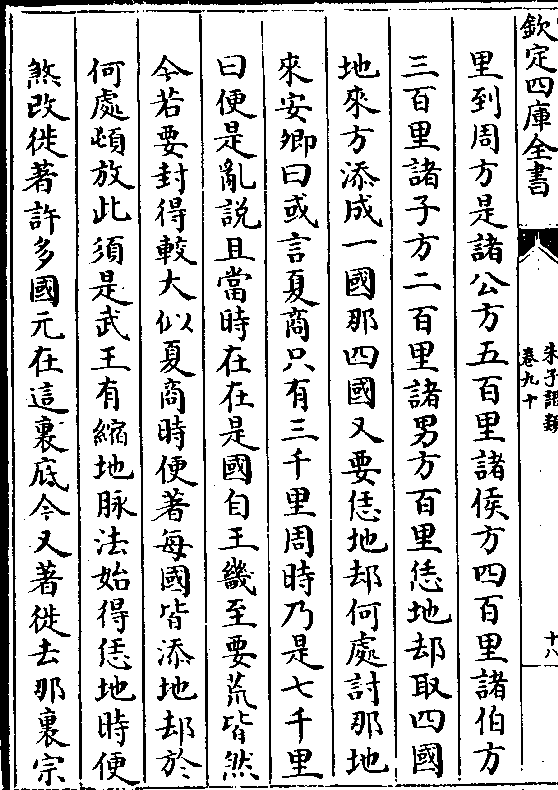 欽定四庫全書
朱子語類
卷九十
十八
里到周方是諸公方五百里諸侯方四百里諸伯方
三百里諸子方二百里諸男方百里恁地却取四國
地來方添成一國那四國又要恁地却何處討那地
來安卿曰或言夏商只有三千里周時乃是七千里
曰便是亂說且當時在在是國自王畿至要荒皆然
今若要封得較大似夏商時便著每國皆添地却於
何處頓放此須是武王有縮地脉法始得恁地時便
煞改徙著許多國元在這裏底今又著徙去那裏宗